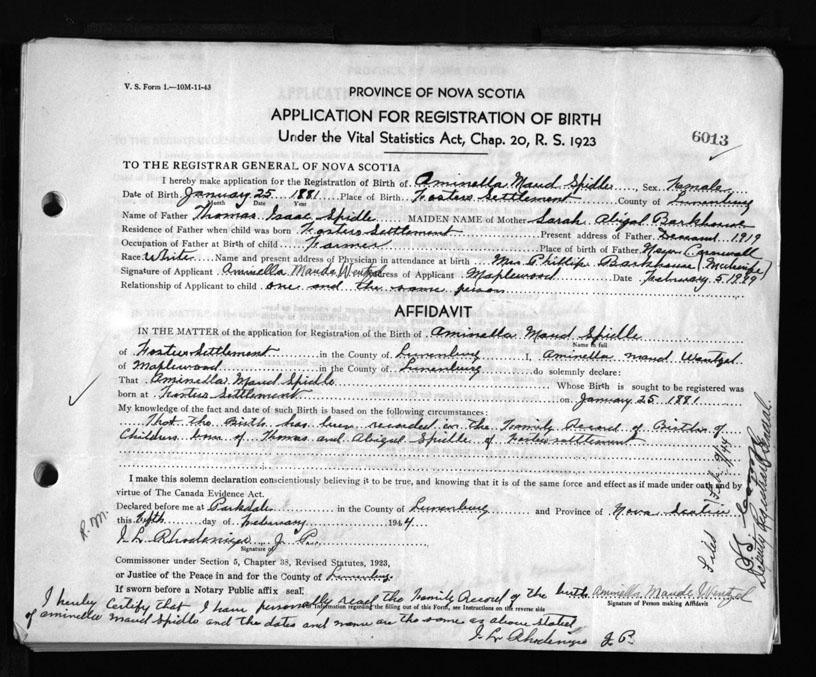 V. S. Form 1.—10M-11-43
PROVINCE OF NOVA SCOTIA
APPLICATION FOR REGISTRATION OF BIRTH
Under the Vital Statistics Act, Chap. 20, R. S. 1923
6013
TO THE REGISTRAR GENERAL OF NOVA SCOTIA
I hereby make application for the Registration of Birth of Aminella Maud Spidle, Sex Female
Date of Birth January 25 1881 Place of Birth Fosters Settlement County of Lunenburg
Month Date Year
Name of Father Thomas Isaac Spidle MAIDEN NAME of Mother Sarah Abigal Barkhouse
Residence of Father when child was born Fosters Settlement Present address of Father Deceased 1919
Occupation of Father at Birth of child Farmer Place of birth of Father New Cornwall
Race White Name and present address of Physician in attendance at birth Mrs Phillip Barkhouse (Midwife)
Signature of Applicant Aminella Maude Wentzel Address of Applicant Maplewood Date February 5, 1944
Relationship of Applicant to child one and the same person
AFFIDAVIT
IN THE MATTER of the application for Registration of the Birth of Aminella Maud Spidle
Name in full
of Fosters Settlement in the County of Lunenburg I, Aminella Maud Wentzel
of Maplewood in the County of Lunenburg do solemnly declare:
That Aminella Maud Spidle Whose Birth is sought to be registered was
born at Fosters Settlement on January 25 1881
My knowledge of the fact and date of such Birth is based on the following circumstances:
That the Birth has been recorded in the Family Record of Births of
Children born of Thomas and Abigal Spidle of Fosters settlement
I make this solemn declaration conscientiously believing it to be true, and knowing that it is of the same force and effect as if made under oath and by
virtue of The Canada Evidence Act.
Declared before me at Parkdale in the County of Lunenburg and Province of Nova Scotia
this fifth day of February 1944
J. L. Rhodenizer J. P.
Signature of
Commissioner under Section 5, Chapter 38, Revised Statutes, 1923,
or Justice of the Peace in and for the County of Lunenburg
If sworn before a Notary Public affix seal.
Aminella Maude Wentzel
For Information regarding the filling out of this Form, see Instructions on the reverse side
Signature of Person making Affidavit
I hereby certify that I have personally read the Family Record of the birth
of Aminella Maud Spidle and the dates and name are the same as above stated
J. L. Rhodenizer J. P.
R. M.
Filed Feb. 9/44
Deputy Registrar General